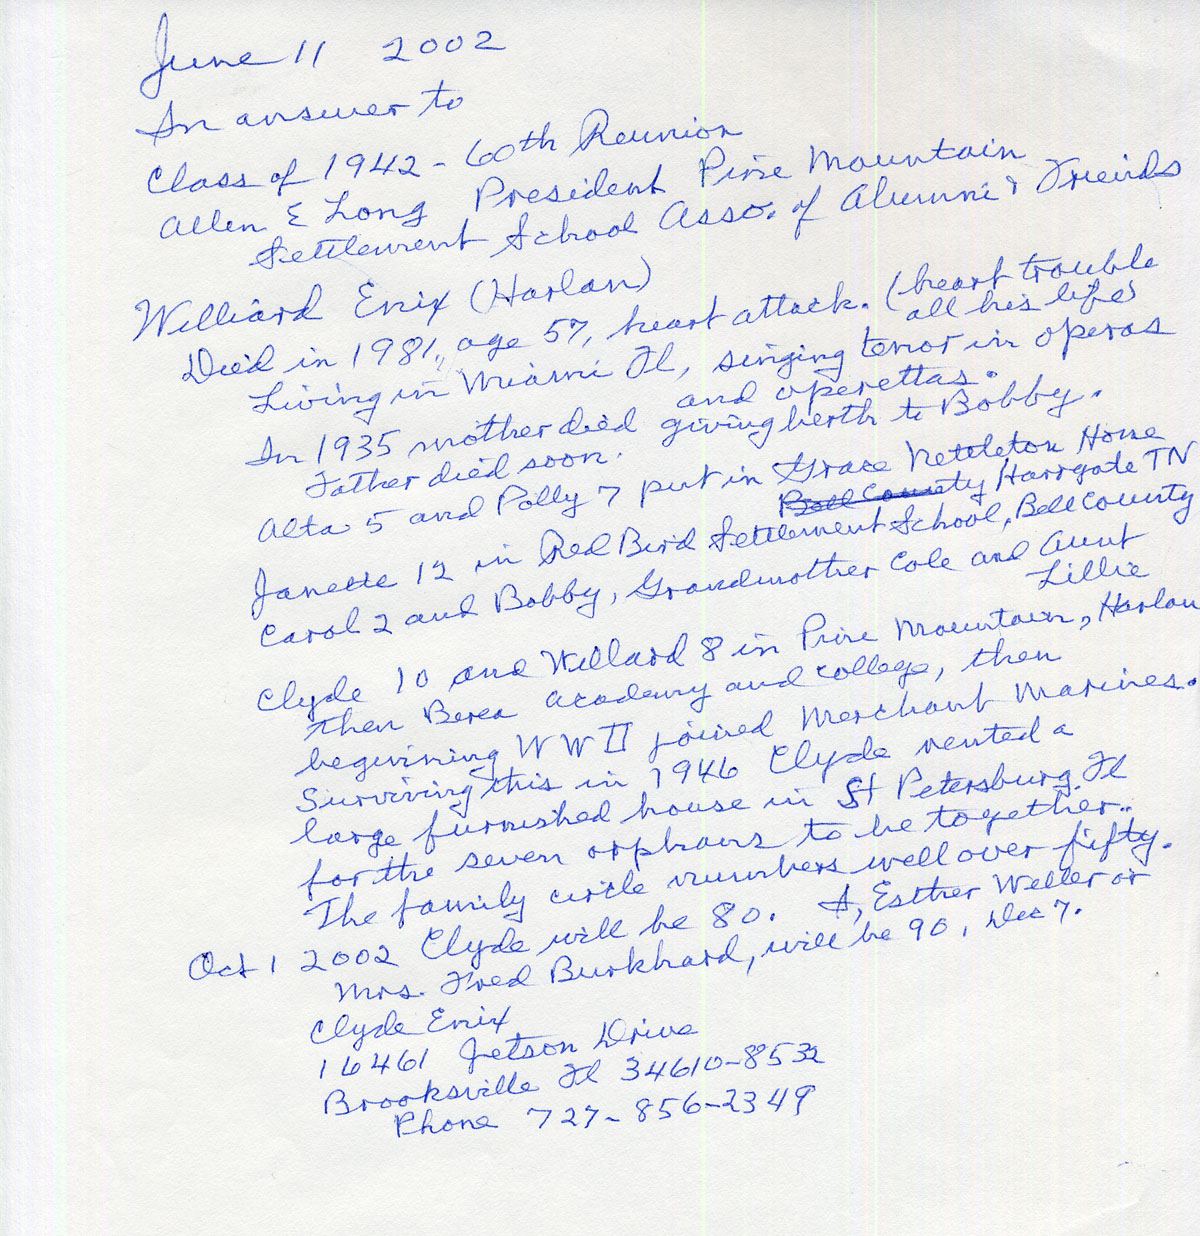 June 11 2002
In answer to
Class of 1942 - 60th Reunion
Allen E Long President Pine Mountain
Settlement School Asso. of Alumni & Freinds
Williard Enix (Harlan)
Died in 1981, age 57, heart attack. (heart trouble
all his life)
Living in Miami Fl, singing tenor in operas
and operettas.
In 1935 mother died giving berth to Bobby.
Father died soon.
Alta 5 and Polly 7 put in Grace Nettleton Home
Bell County Harrgate TN
Janette 12 in Red Bird Settlement School, Bell County
Carol 2 and Bobby, Grandmother Cole and Aunt
Lillie
Clyde 10 and Willard 8 in Pine Mountain, Harlan
then Berea academy and college, then
beginning WW II joined Merchant Marines.
Surviving this in 1946 Clyde rented a
large furnished house in St Petersburg Fl
for the seven orphans to be together.
The family circle numbers well over fifty.
Oct 1 2002 Clyde will be 80. I, Esther Weller or
Mrs. Fred Burkhard, will be 90, Dec 7.
Clyde Enix
16461 Jetson Drive
Brooksville Fl 34610-8532
Phone 727-856-2349